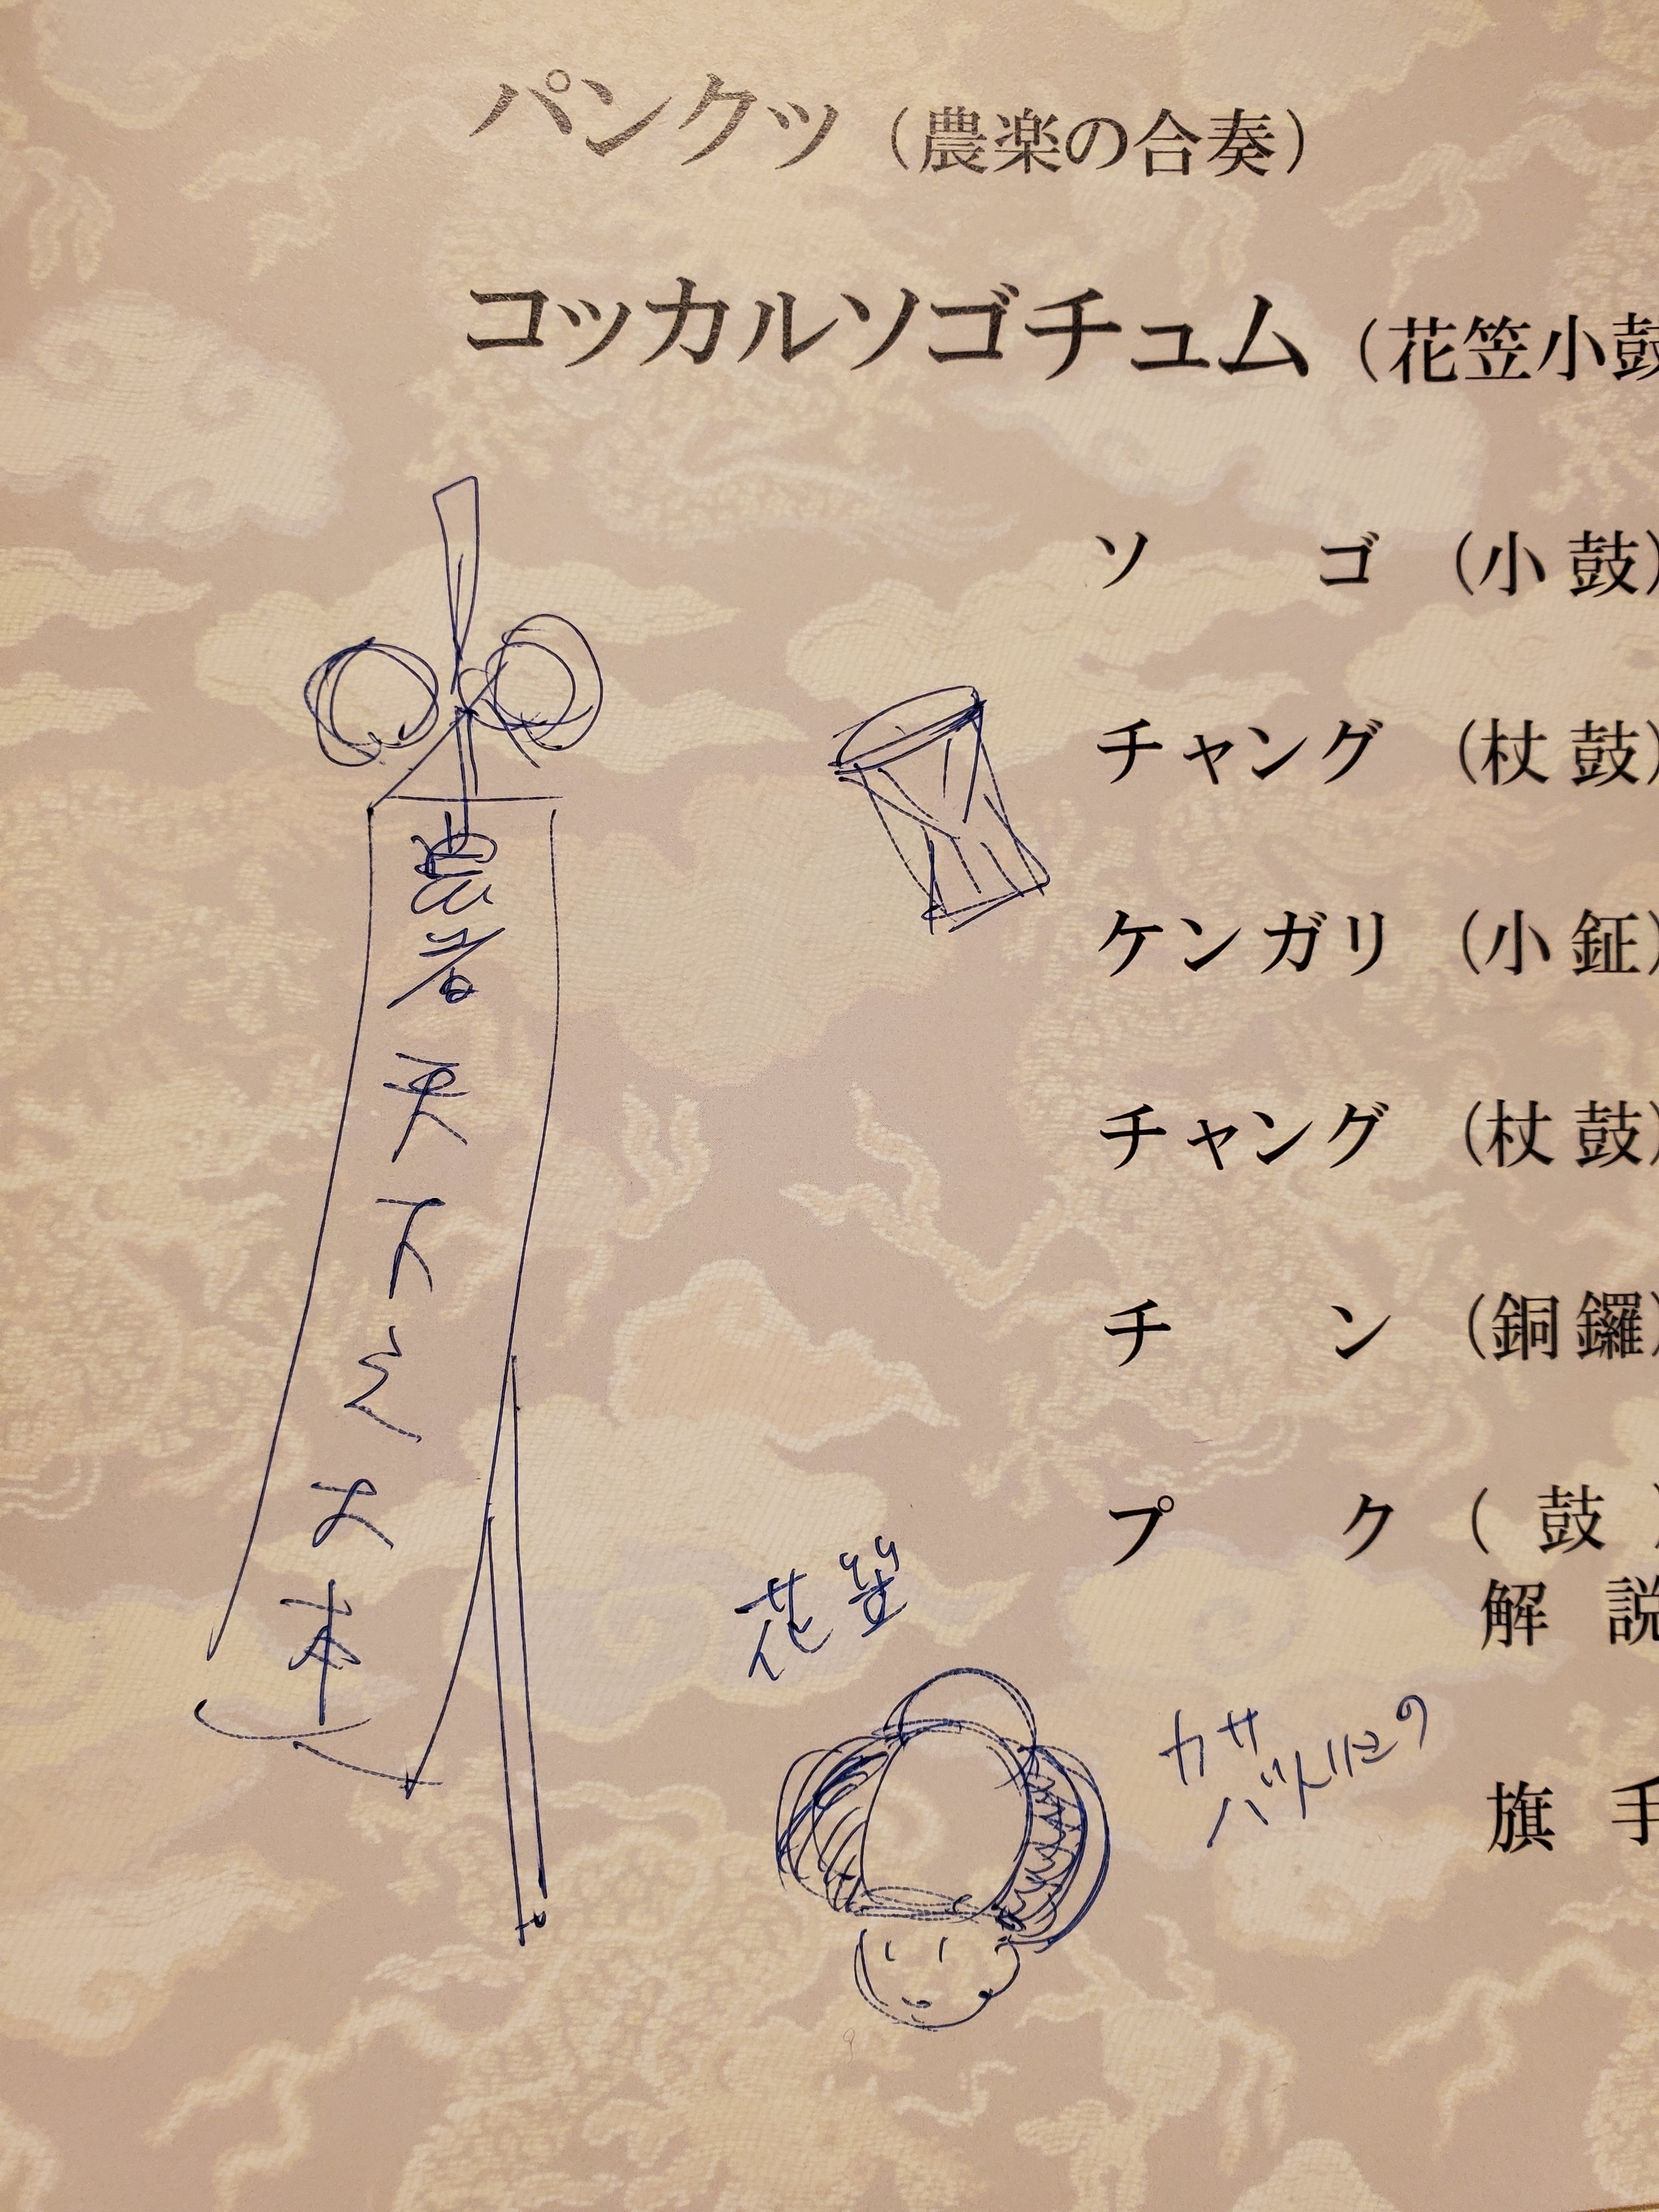 パンクッ（農楽の合奏）
コッカルソゴチュム（花笠小鼓
ソゴ（小鼓）
チャング（杖鼓）
ケンガリ（小鉦）
チャング（杖鼓）
チン（銅鑼）
プク（鼓）
解説
旗手
農者天下之大本
花笠
カサ